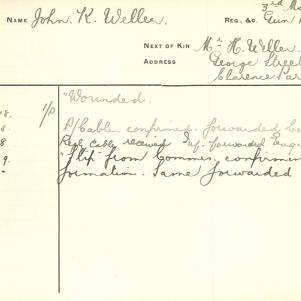 3rd M
NAME John. K. Weller. REG., &C. Gun
NEXT OF KIN Mr H. Weller.
ADDRESS George Street
Clarence Par
8. 1/P "Wounded.
8. A/Cable confirmed. forwarded
8 Real Cable received forwarded
9. "Slip" from Commu. confirmin
" formation. Same forwarded